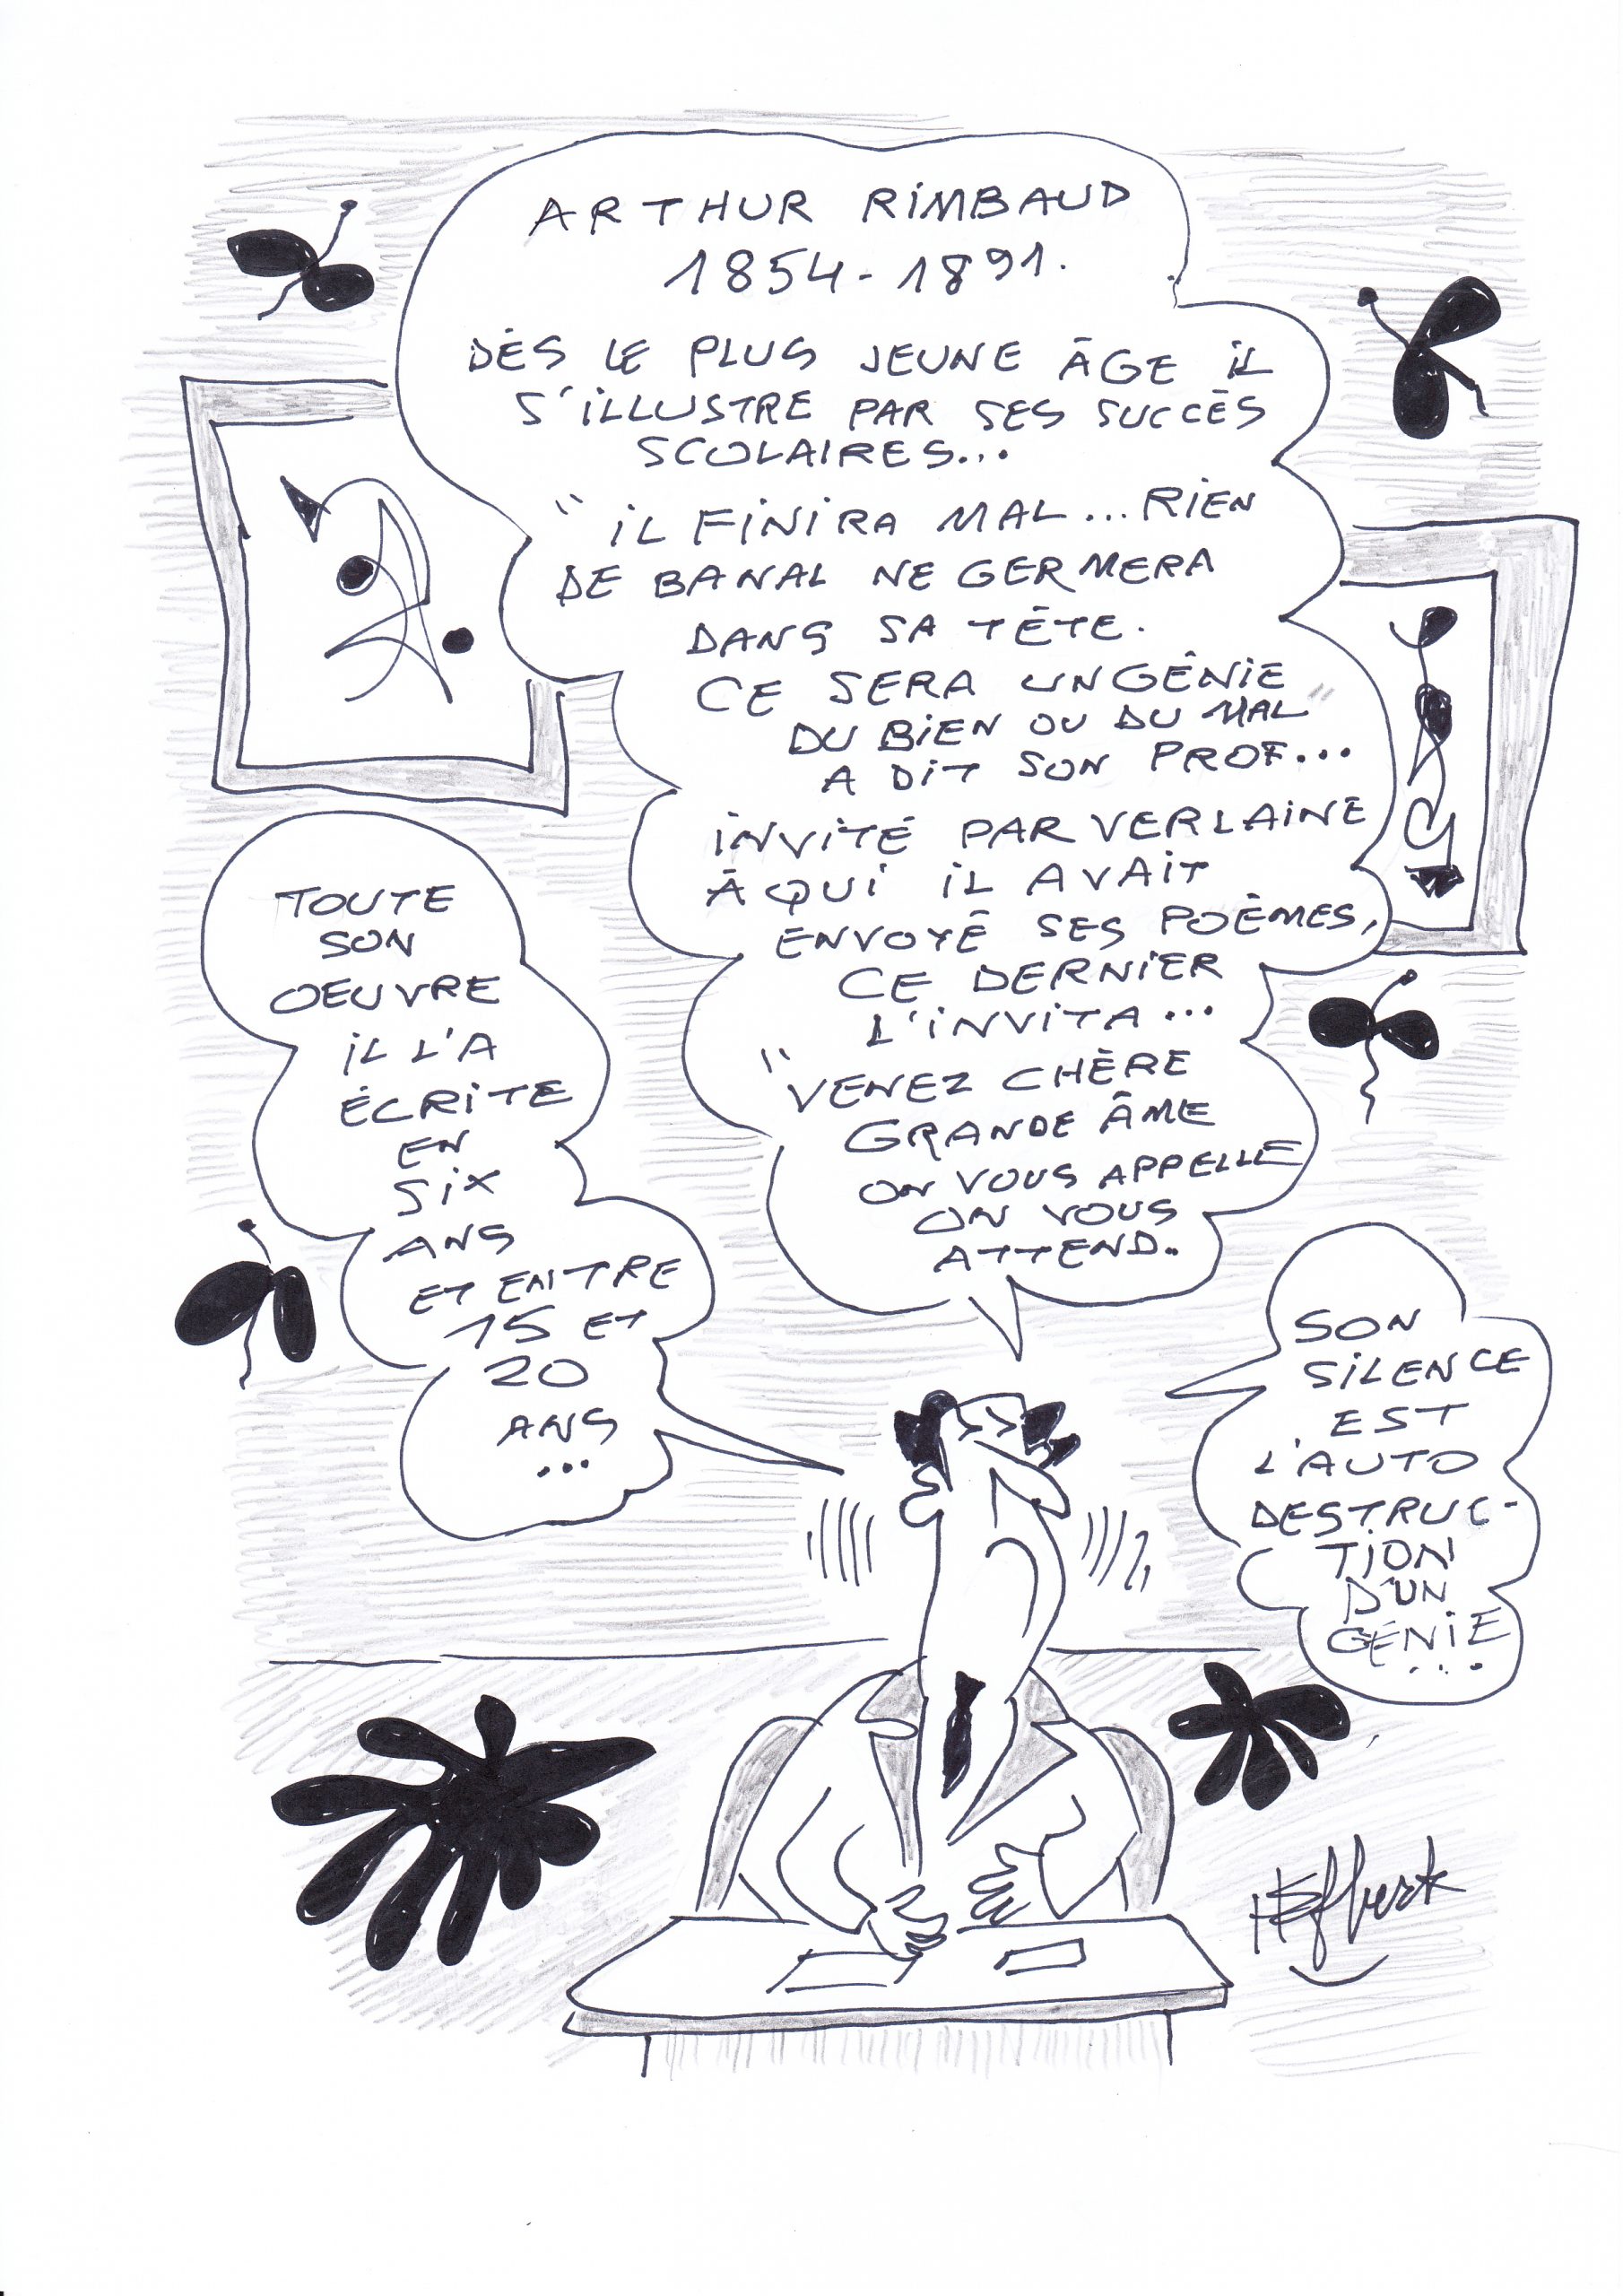 ARTHUR RIMBAUD
1854-1891.
DÈS LE PLUS JEUNE ÂGE IL
S'ILLUSTRE PAR SES SUCCÈS
SCOLAIRES...
"IL FINIRA MAL... RIEN
DE BANAL NE GERMERA
DANS SA TÊTE.
CE SERA UN GÉNIE
DU BIEN OU DU MAL"
A DIT SON PROF...
INVITÉ PAR VERLAINE
À QUI IL AVAIT
ENVOYÉ SES POÈMES,
CE DERNIER
L'INVITA...
"VENEZ CHÈRE
GRANDE ÂME
ON VOUS APPELLE
ON VOUS
ATTEND..
TOUTE
SON
OEUVRE
IL L'A
ÉCRITE
EN
SIX
ANS
ET ENTRE
15 ET
20
ANS
...
SON
SILENCE
EST
L'AUTO
DESTRUC-
TION
D'UN
GÉNIE
...